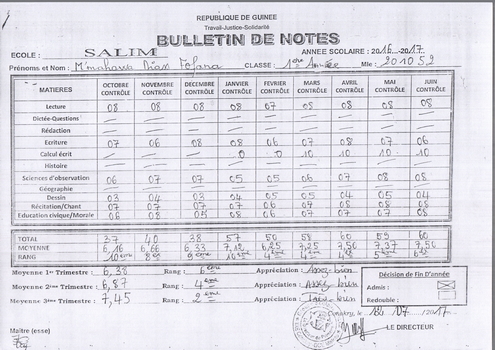 REPUBLIQUE DE GUINEE
Travail-Justice-Solidarité
BULLETIN DE NOTES
ECOLE : SALIM ANNEE SCOLAIRE : 2016 ...2017
Prénoms et Nom : M'mahawa Fofana CLASSE : 1ère Année Mle : 201052
MATIERES OCTOBRE CONTRÔLE NOVEMBRE CONTRÔLE DECEMBRE CONTRÔLE JANVIER CONTRÔLE FEVRIER CONTRÔLE MARS CONTRÔLE AVRIL CONTRÔLE MAI CONTRÔLE JUIN CONTRÔLE
Lecture 08 08 08 08 07 08 08 08 08
Dictée-Questions
Rédaction
Ecriture 07 06 08 08 06 07 08 07 06
Calcul écrit 0 0 10 10 10 10
Histoire
Sciences d'observation 06 07 07 05 05 06 07 08 08
Géographie
Dessin 03 04 03 04 05 05 04 05 04
Récitation/Chant 07 07 07 07 08 08 08
Education civique/Morale 06 08 05 08 06 07 07 07 08
TOTAL 37 40 38 57 50 58 60 59 60
MOYENNE 6,16 6,66 6,33 7,12 6,25 7,25 7,50 7,37 7,50
RANG 10ème 8è 9ème 10ème 4ème 4ème 5ème
Moyenne 1er Trimestre : 6,38 Rang : 6ème Appréciation : Assez-bien
Moyenne 2ème Trimestre : 6,87 Rang : 4ème Appréciation : Assez-bien
Moyenne 3ème Trimestre : 7,45 Rang : 2ème Appréciation : bien
Décision de Fin D'année
Admis :
Redouble :
Conakry, le 07 /2017
Maître (esse)
LE DIRECTEUR